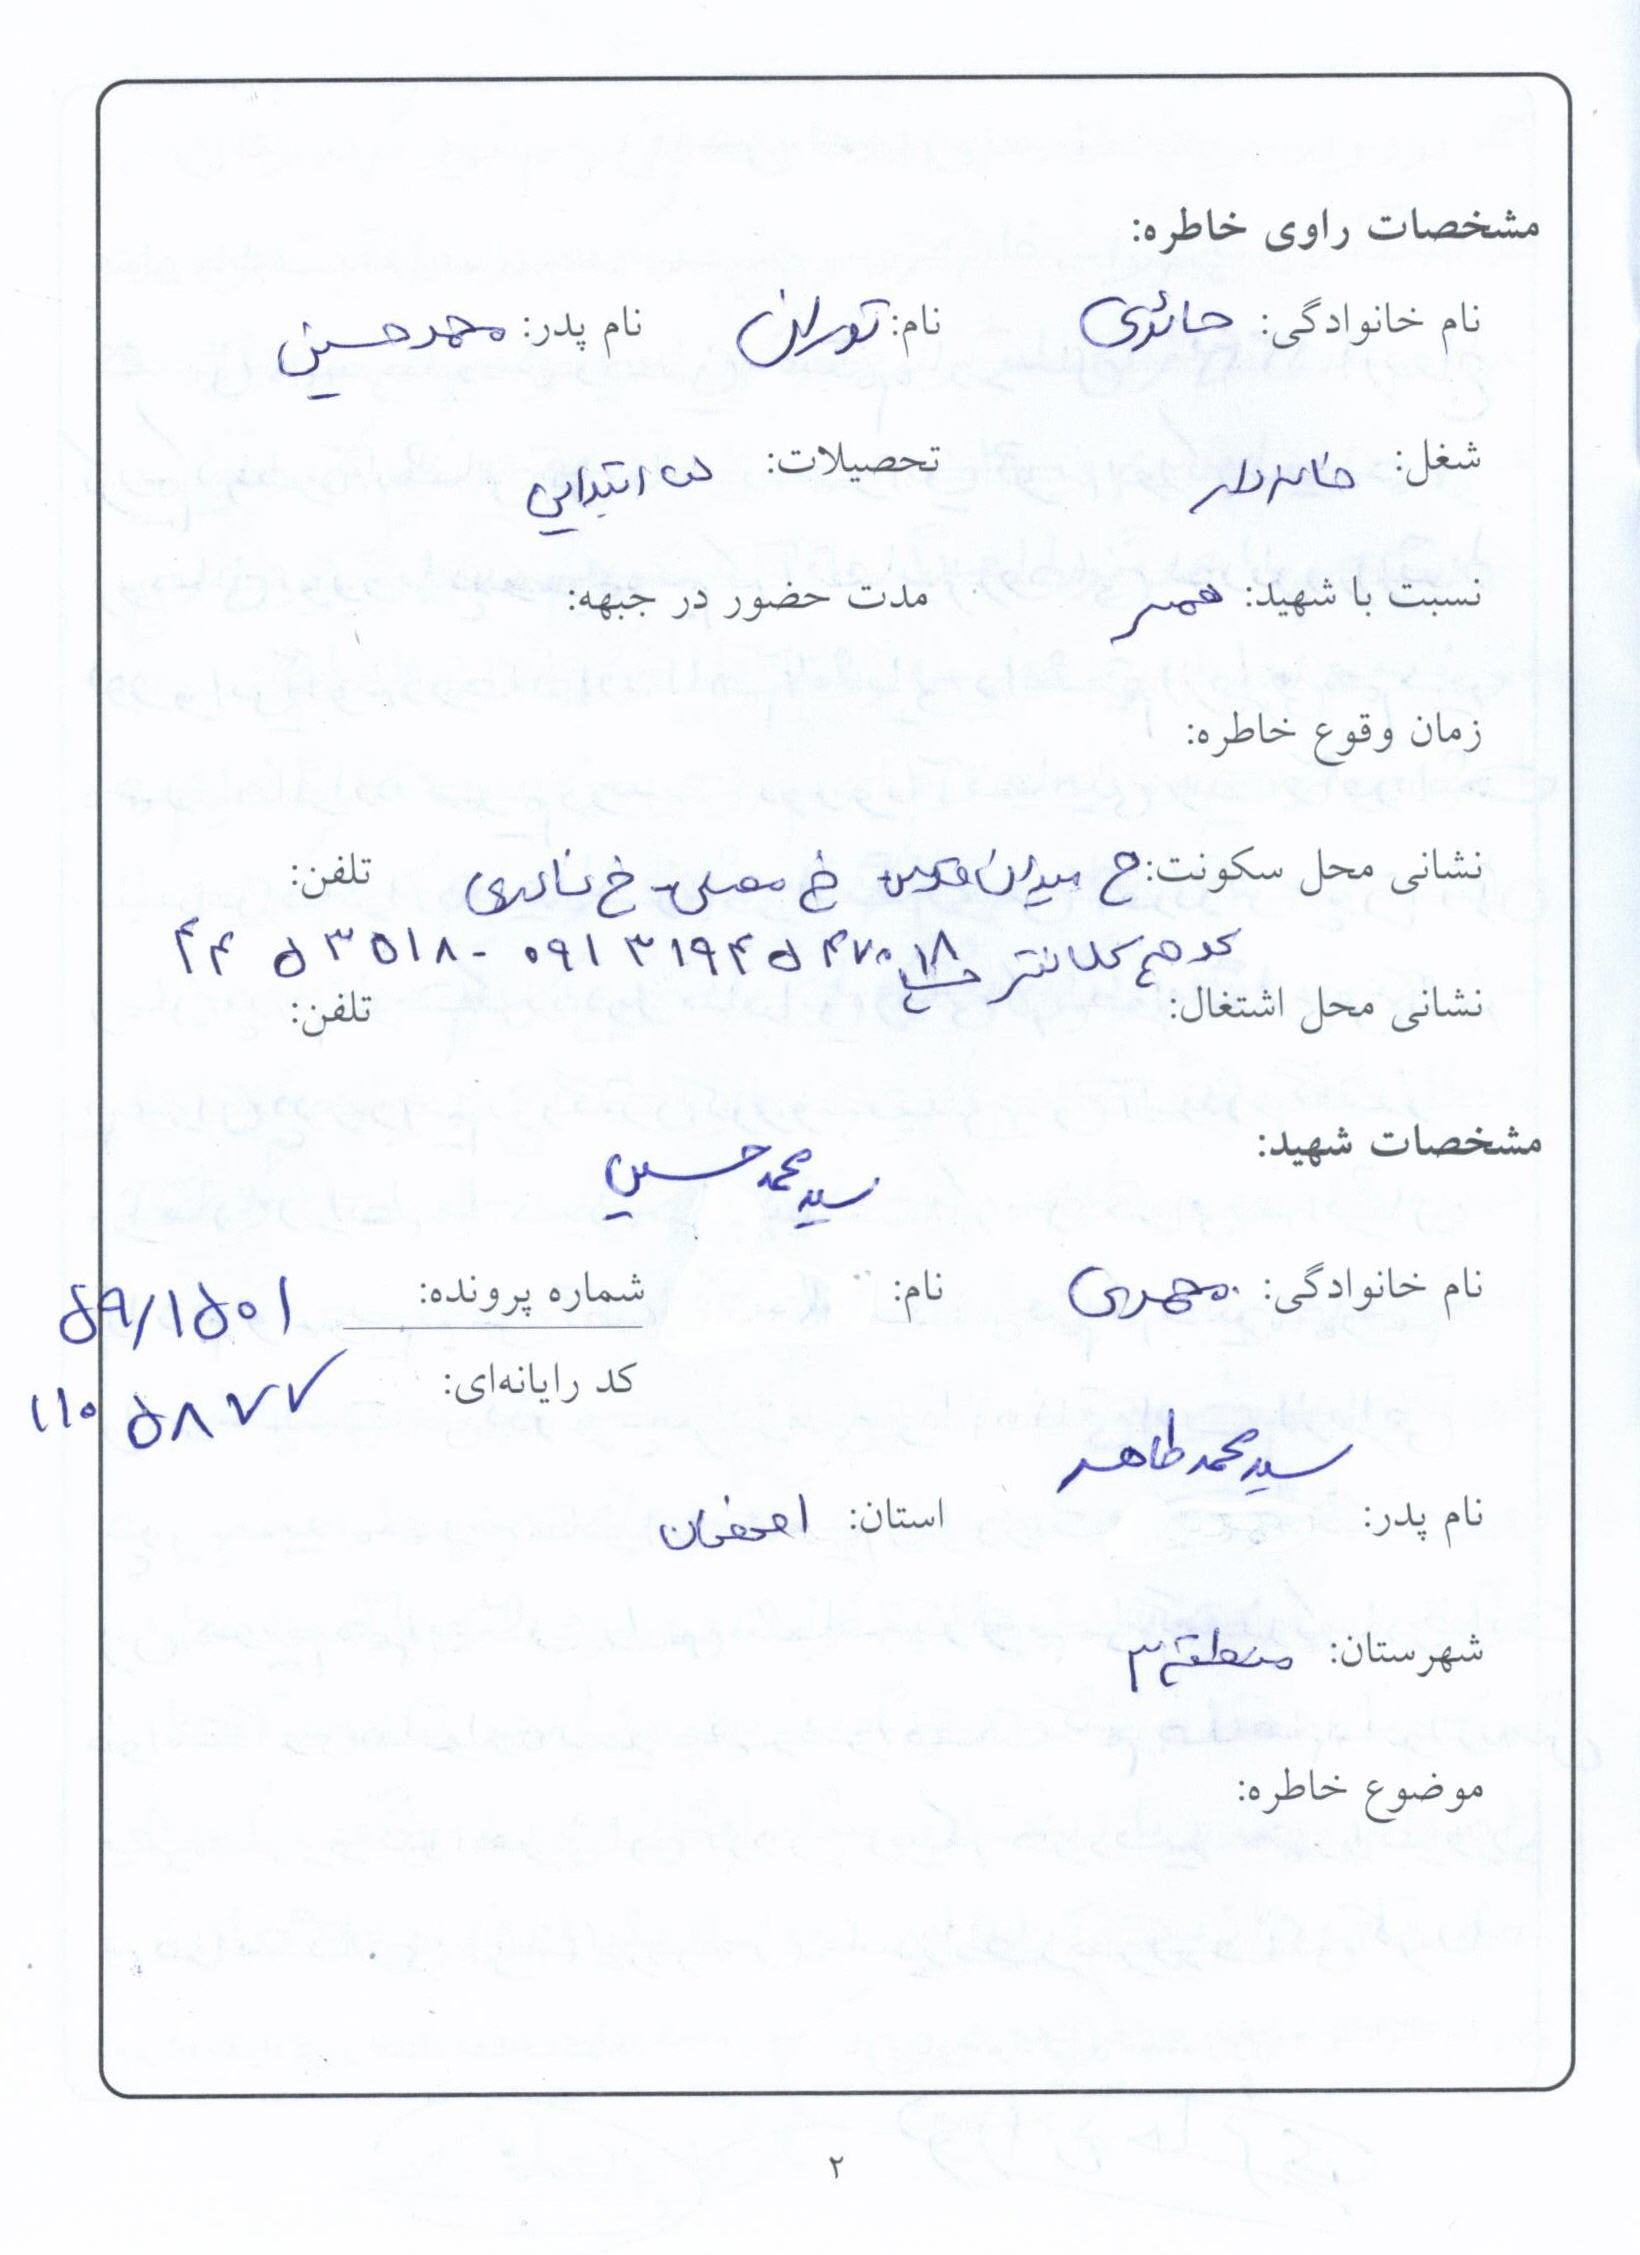 مشخصات راوی خاطره:
نام خانوادگی: حائری نام: توران نام پدر: محمدحسین
شغل: خانه دار تحصیلات: ابتدایی
نسبت با شهید: همسر مدت حضور در جبهه:
زمان وقوع خاطره:
نشانی محل سکونت: خ میدان قدس خ مصلی - خ تلفن:
کوچه کلانتر
نشانی محل اشتغال: تلفن:
مشخصات شهید:
سید محمد حسین
نام خانوادگی: مهدی نام: شماره پرونده: ۵۹/۱۵۰۱
کد رایانه‌ای: ۱۱۰۵۸۷۷
سید محمد طاهر
نام پدر: استان: اصفهان
شهرستان: منطقه ۳
موضوع خاطره:
۲